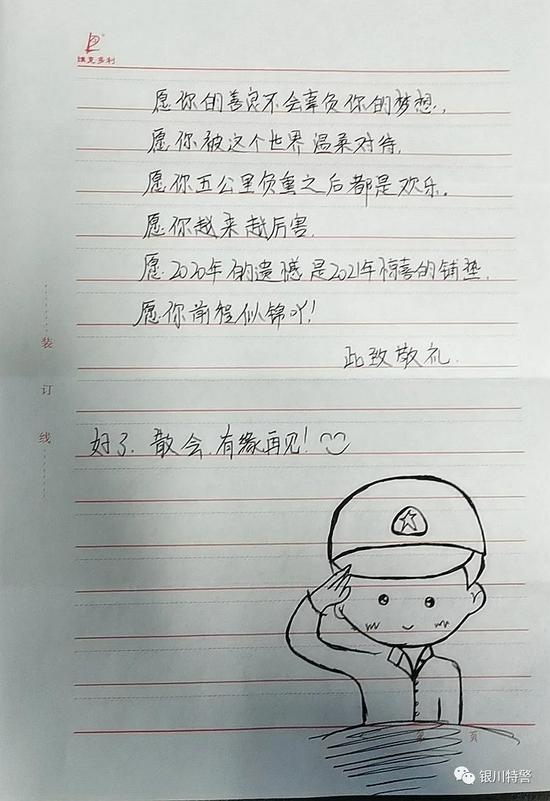 琪克多利
愿你的善良不会辜负你的梦想.
愿你被这个世界温柔对待.
愿你五公里负重之后都是欢乐.
愿你越来越厉害.
愿2020年的遗憾是2021年惊喜的铺垫.
愿你前程似锦吖!
此致敬礼.
装
订
线
好了.散会.有缘再见!
页
银川特警